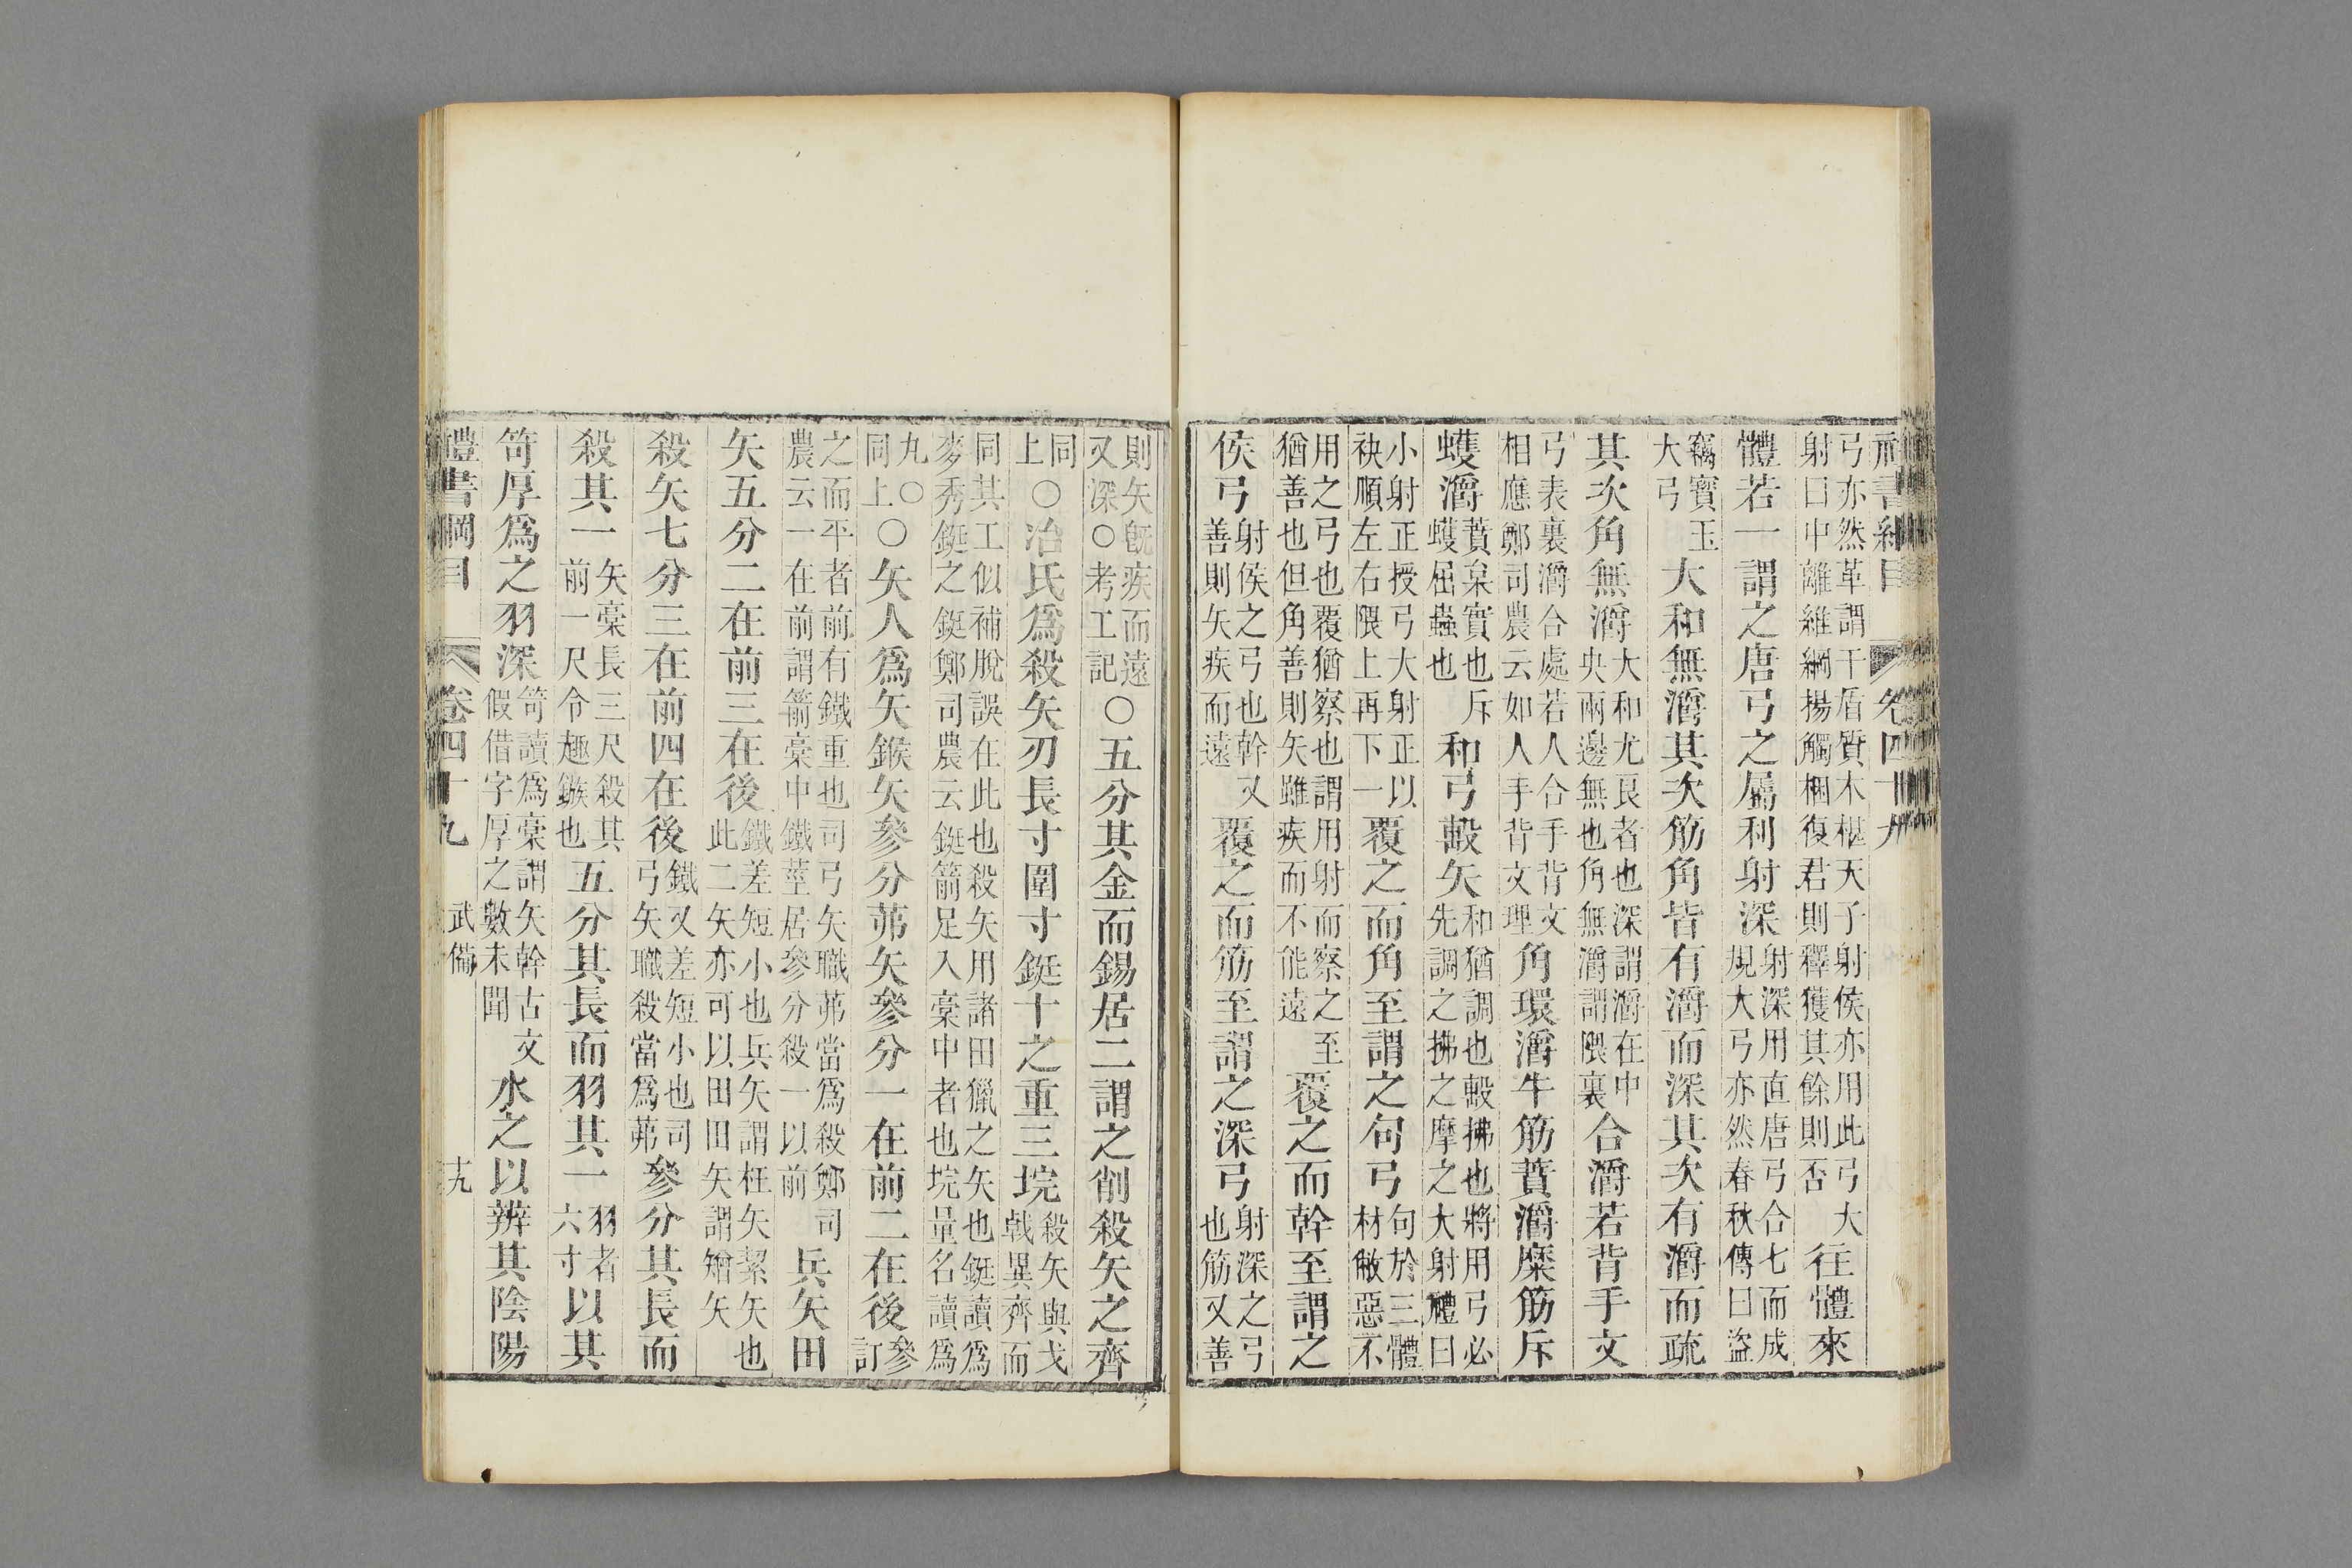 禮書綱目 卷四十九
弓亦然革謂干盾質木椹天子射侯亦用此弓大射曰中離維綱揚觸梱復君則釋獲其餘則否往體來
體若一謂之唐弓之屬利射深射深用直唐弓合七而成規大弓亦然春秋傳曰盜
竊寶玉大弓大和無灂其次筋角皆有灂而深其次有灂而疏
其次角無灂大和尤良者也深謂灂在中央兩邊無也角無灂謂隈裏合灂若背手文
弓表裏灂合處若人合手背文相應鄭司農云如人手背文理角環灂牛筋蕡灂麋筋斥
蠖灂蕡枲實也斥蠖屈蟲也和弓毄矢和猶調也毄拂也將用弓必先調之拂之摩之大射禮曰
小射正授弓大射正以袂順左右隈上再下一覆之而角至謂之句弓句於三體材敝惡不
用之弓也覆猶察也謂用射而察之至猶善也但角善則矢雖疾而不能遠覆之而幹至謂之
侯弓射侯之弓也幹又善則矢疾而遠覆之而筋至謂之深弓射深之弓也筋又善
則矢旣疾而遠又深○考工記○五分其金而錫居二謂之削殺矢之齊
同上○冶氏爲殺矢刃長寸圍寸鋌十之重三垸殺矢與戈戟異齊而
同其工似補脫誤在此也殺矢用諸田獵之矢也鋌讀爲麥秀鋌之鋌鄭司農云鋌箭足入槀中者也垸量名讀爲
丸○同上○矢人爲矢鍭矢參分茀矢參分一在前二在後參訂
之而平者前有鐵重也司弓矢職茀當爲殺鄭司農云一在前謂箭槀中鐵莖居參分殺一以前兵矢田
矢五分二在前三在後鐵差短小也兵矢謂枉矢絜矢也此二矢亦可以田田矢謂矰矢
殺矢七分三在前四在後鐵又差短小也司弓矢職殺當爲茀參分其長而
殺其一矢槀長三尺殺其前一尺令趣鏃也五分其長而羽其一羽者六寸以其
笴厚爲之羽深笴讀爲槀謂矢幹古文假借字厚之數未聞水之以辨其陰陽
禮書綱目 卷四十九 武備 十九